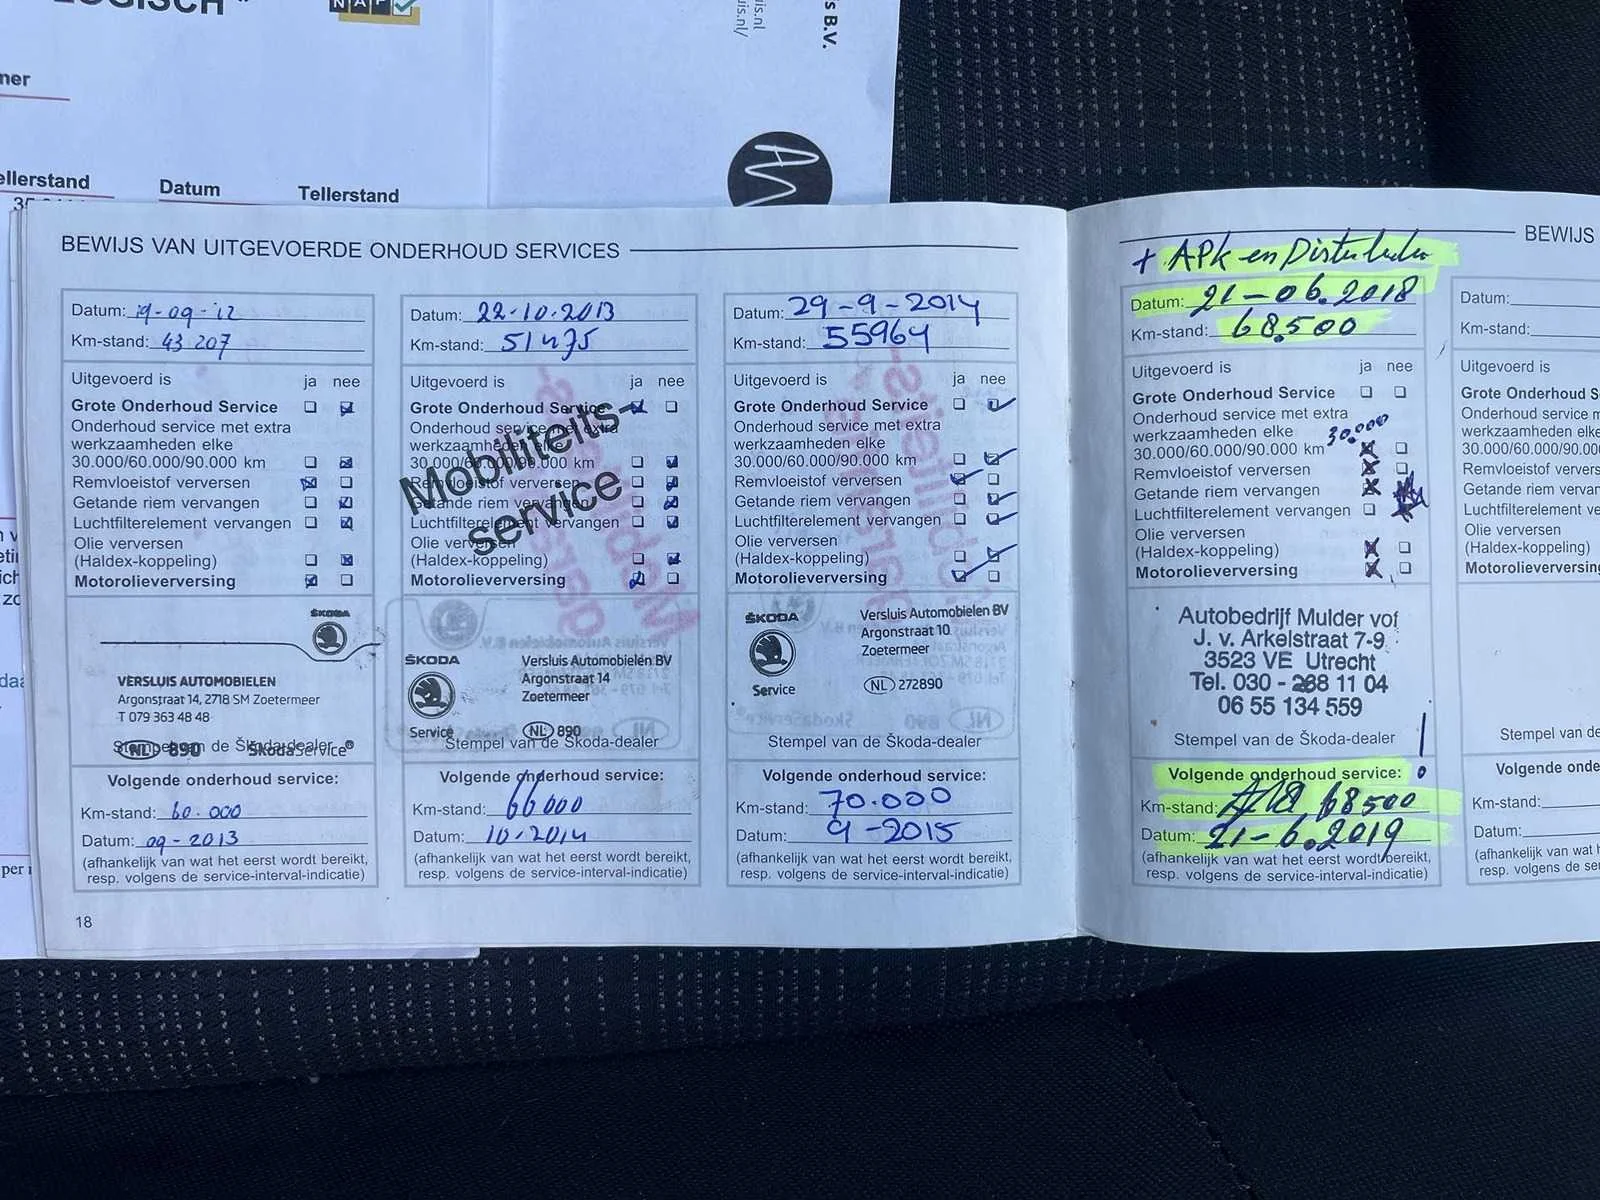 LOGISCH"
NAP
s B.V.
uis.nl
uis.nl/
mer
ellerstand
Datum
Tellerstand
BEWIJS VAN UITGEVOERDE ONDERHOUD SERVICES
Datum: 19-09-'12
Km-stand: 43 207
Uitgevoerd is ja nee
Grote Onderhoud Service
Onderhoud service met extra
werkzaamheden elke
30.000/60.000/90.000 km
Remvloeistof verversen
Getande riem vervangen
Luchtfilterelement vervangen
Olie verversen
(Haldex-koppeling)
Motorolieverversing
ŠKODA
VERSLUIS AUTOMOBIELEN
Argonstraat 14, 2718 SM Zoetermeer
T 079 363 48 48
Stempel van de Škoda-dealer
NL 890 ŠkodaService®
Volgende onderhoud service:
Km-stand: 60.000
Datum: 09-2013
(afhankelijk van wat het eerst wordt bereikt,
resp. volgens de service-interval-indicatie)
18
Datum: 22-10-2013
Km-stand: 51475
Uitgevoerd is ja nee
Grote Onderhoud Service
Onderhoud service met extra
werkzaamheden elke
30.000/60.000/90.000 km
Remvloeistof verversen
Getande riem vervangen
Luchtfilterelement vervangen
Olie verversen
(Haldex-koppeling)
Motorolieverversing
Mobiliteits-
service
ŠKODA
Service
Versluis Automobielen BV
Argonstraat 14
Zoetermeer
NL 890
Stempel van de Škoda-dealer
Volgende onderhoud service:
Km-stand: 66000
Datum: 10-2014
(afhankelijk van wat het eerst wordt bereikt,
resp. volgens de service-interval-indicatie)
Datum: 29-9-2014
Km-stand: 55964
Uitgevoerd is ja nee
Grote Onderhoud Service
Onderhoud service met extra
werkzaamheden elke
30.000/60.000/90.000 km
Remvloeistof verversen
Getande riem vervangen
Luchtfilterelement vervangen
Olie verversen
(Haldex-koppeling)
Motorolieverversing
ŠKODA
Service
Versluis Automobielen BV
Argonstraat 10
Zoetermeer
NL 272890
Stempel van de Škoda-dealer
Volgende onderhoud service:
Km-stand: 70.000
Datum: 9-2015
(afhankelijk van wat het eerst wordt bereikt,
resp. volgens de service-interval-indicatie)
+ APK en
Datum: 21-06.2018
Km-stand: 68.500
Uitgevoerd is ja nee
Grote Onderhoud Service
Onderhoud service met extra
werkzaamheden elke 30.000
30.000/60.000/90.000 km
Remvloeistof verversen
Getande riem vervangen
Luchtfilterelement vervangen
Olie verversen
(Haldex-koppeling)
Motorolieverversing
Autobedrijf Mulder vof
J. v. Arkelstraat 7-9
3523 VE Utrecht
Tel. 030 - 288 11 04
06 55 134 559
Stempel van de Škoda-dealer
Volgende onderhoud service: !
Km-stand: 68500
Datum: 21-6.2019
(afhankelijk van wat het eerst wordt bereikt,
resp. volgens de service-interval-indicatie)
BEWIJS
Datum:
Km-stand:
Uitgevoerd is
Grote Onderhoud S
Onderhoud service m
werkzaamheden elke
30.000/60.000/90.00
Remvloeistofververs
Getande riem vervan
Luchtfilterelement ve
Olie verversen
(Haldex-koppeling)
Motorolieverversing
Stempel van de
Volgende onde
Km-stand:
Datum:
(afhankelijk van wat h
resp. volgens de se